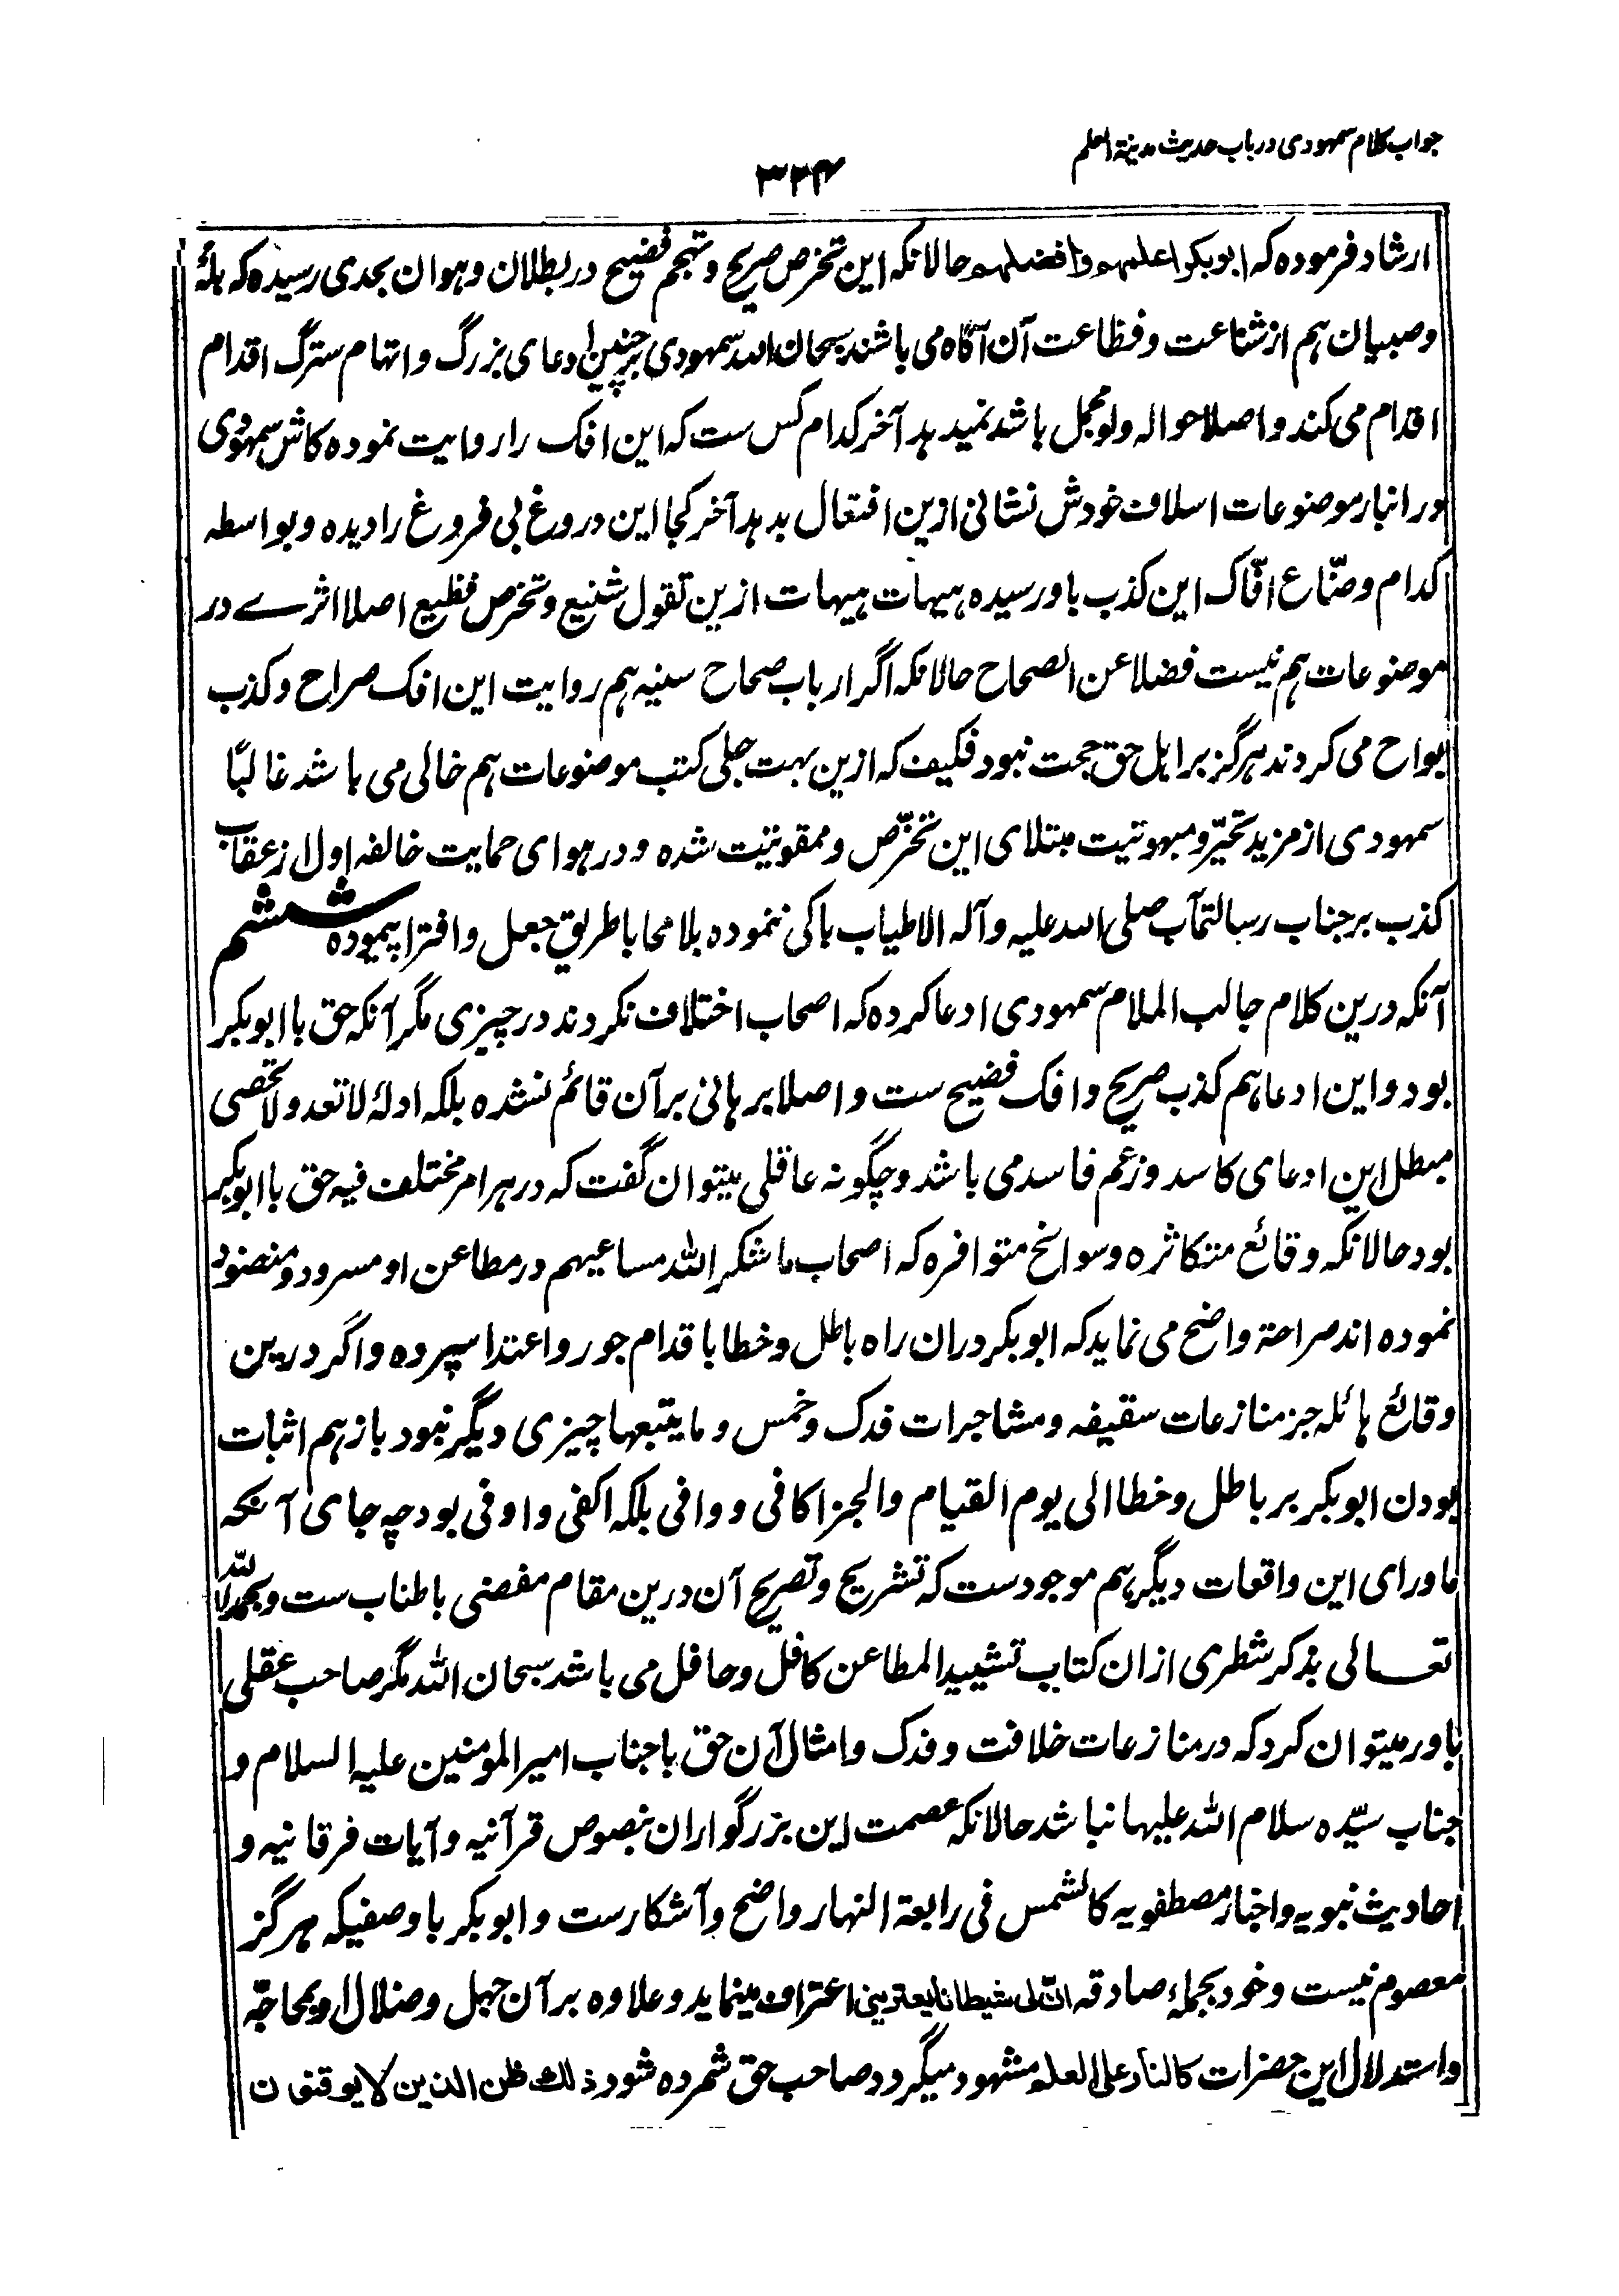 جواب کلام سمهودی در باب حدیث مدینة العلم
۳۲۴
ارشاد فرموده که ابوبکر اعلمهم و افضلهم حالانکه این تخرص صریح و تهجم فضیح در بطلان و هوان بحدی رسیده که بله
و صبیان هم از شناعت و فظاعت آن آگاه می باشند سبحان الله سمهودی بر چنین ادعای بزرگ و اتهام سترگ اقدام
اقدام می کند و اصلا حواله ولو مجمل باشد نمیدهد آخر کدام کس ست که این افک را روایت نموده کاش سمهودی
در انبار موضوعات اسلاف خودش نشانی ازین افتعال بدهد آخر کجا این دروغ بی فروغ را دیده و بواسطه
کدام وضّاع افّاک این کذب باو رسیده هیهات هیهات ازین تقول شنیع و تخرص فظیع اصلا اثرے در
موضوعات هم نیست فضلا عن الصحاح حالانکه اگر ارباب صحاح سنیه هم روایت این افک صراح و کذب
بواح می کردند هرگز بر اهل حق حجت نبود فکیف که ازین بهت جلی کتب موضوعات هم خالی می باشد غالبًا
سمهودی از مزید تحیّر و مبهوتیت مبتلای این تخرّص و ممقوتیت شده و در هوای حمایت خالفه اول از عقاب
کذب بر جناب رسالتمآب صلی الله علیه و آله الاطیاب باکی ننموده بلا محابا طریق جعل و افترا پیموده ششم
آنکه درین کلام جالب الملام سمهودی ادعا کرده که اصحاب اختلاف نکردند در چیزی مگر آنکه حق با ابوبکر
بود و این ادعا هم کذب صریح و افک فضیح ست و اصلا برهانی بر آن قائم نشده بلکه ادلهٔ لا تعد و لا تحصی
مبطل این ادعای کاسد و زعم فاسد می باشد و چگونه عاقلی میتوان گفت که در هر امر مختلف فیه حق با ابوبکر
بود حالانکه وقائع متکاثره و سوانح متوافره که اصحاب ما شکر الله مساعیهم در مطاعن او مسرود و منضود
نموده اند صراحة واضح می نماید که ابوبکر دران راه باطل و خطا باقدام جور و اعتدا سپرده و اگر درین
وقائع هائله جز منازعات سقیفه و مشاجرات فدک و خمس و ما یتبعها چیزی دیگر نبود باز هم اثبات
بودن ابوبکر بر باطل و خطا الی یوم القیام والجزا کافی و وافی بلکه اکفی و اوفی بود چه جای آنکه
ماورای این واقعات دیگر هم موجودست که تشریح و تصریح آن درین مقام مفضی باطناب ست و بحمد الله
تعالی بذکر شطری ازان کتاب تشیید المطاعن کافل و حافل می باشد سبحان الله مگر صاحب عقلی
باور میتوان کرد که در منازعات خلافت و فدک و امثال آن حق با جناب امیر المومنین علیه السلام و
جناب سیّده سلام الله علیها نباشد حالانکه عصمت این بزرگواران بنصوص قرآنیه و آیات فرقانیه و
احادیث نبویه و اخبار مصطفویه کالشمس فی رابعة النهار واضح و آشکارست و ابوبکر با وصفیکه هرگز
معصوم نیست و خود بجملهٔ صادقه ان لی شیطانا یعترینی اعتراف مینماید و علاوه بر آن جهل و ضلال او بمحاجّه
و استدلال این حضرات کالنار علی العلم مشهود میگردد صاحب حق شمرده شود ذلك ظن الذین لا یوقنون